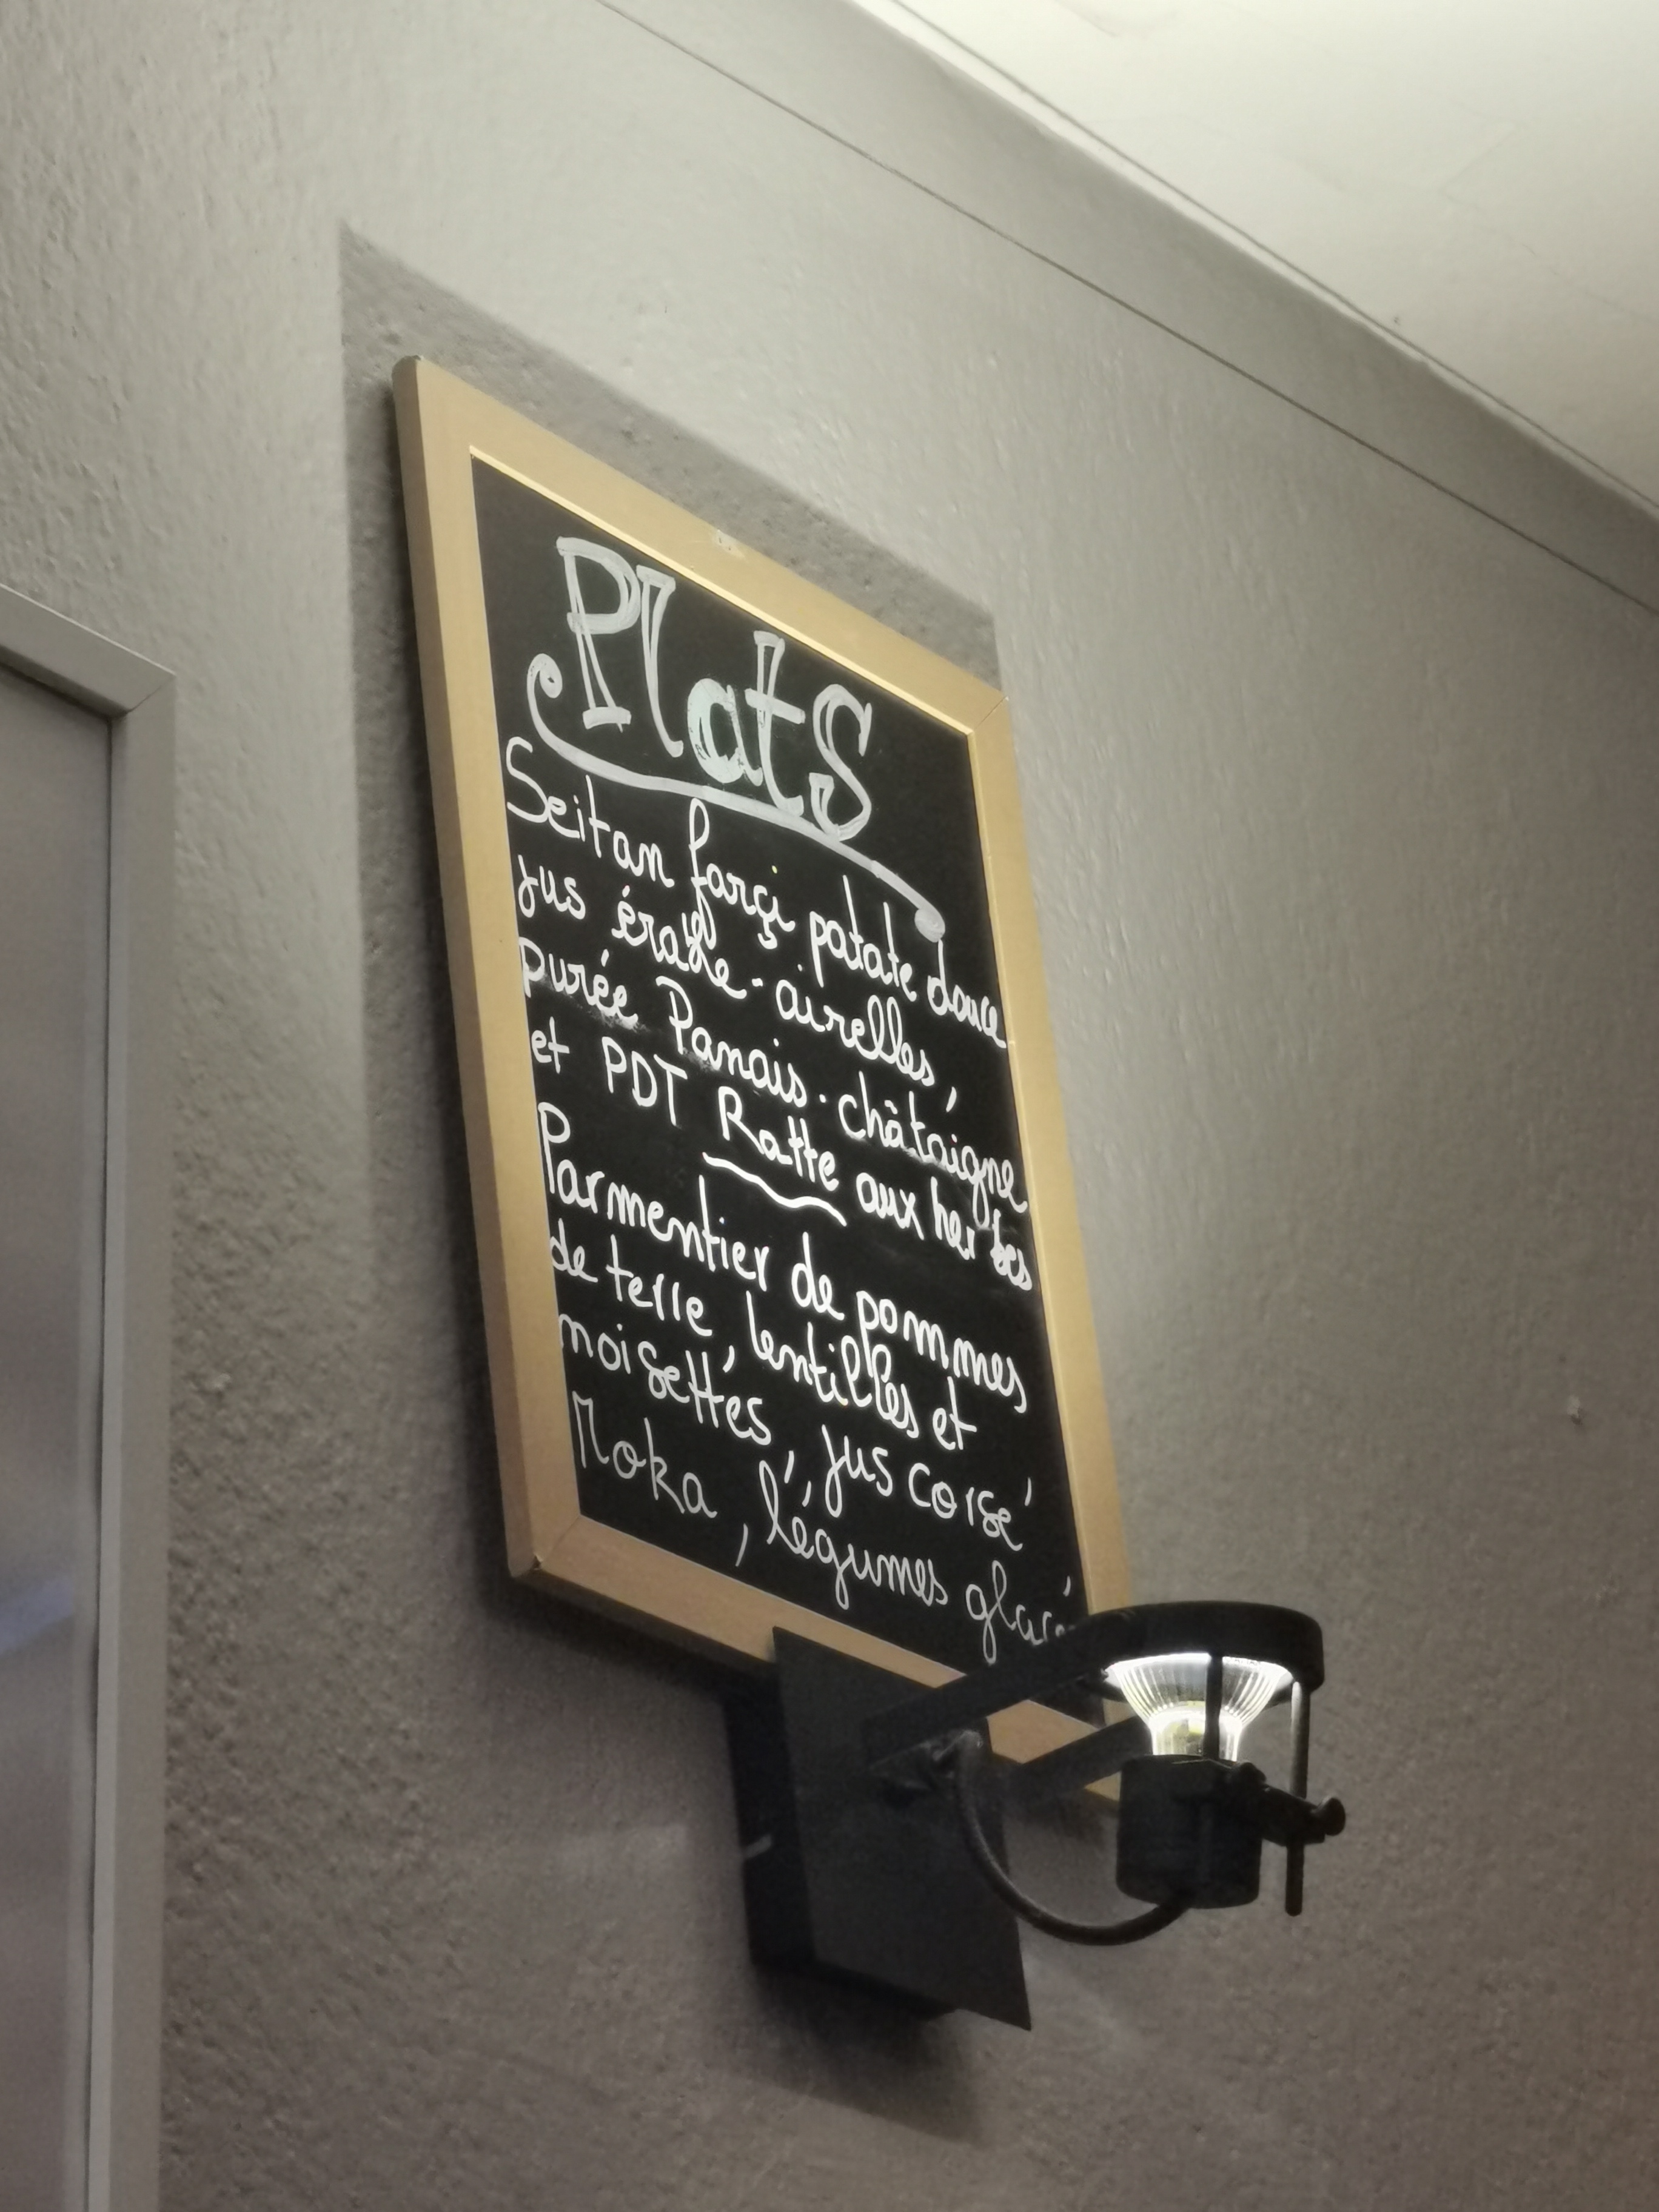 Plats
Seitan farçi patate douce
jus érable-airelles,
purée Panais-châtaigne
et PDT Ratte aux herbes
Parmentier de pommes
de terre, lentilles et
noisettes, jus corsé
Moka, légumes